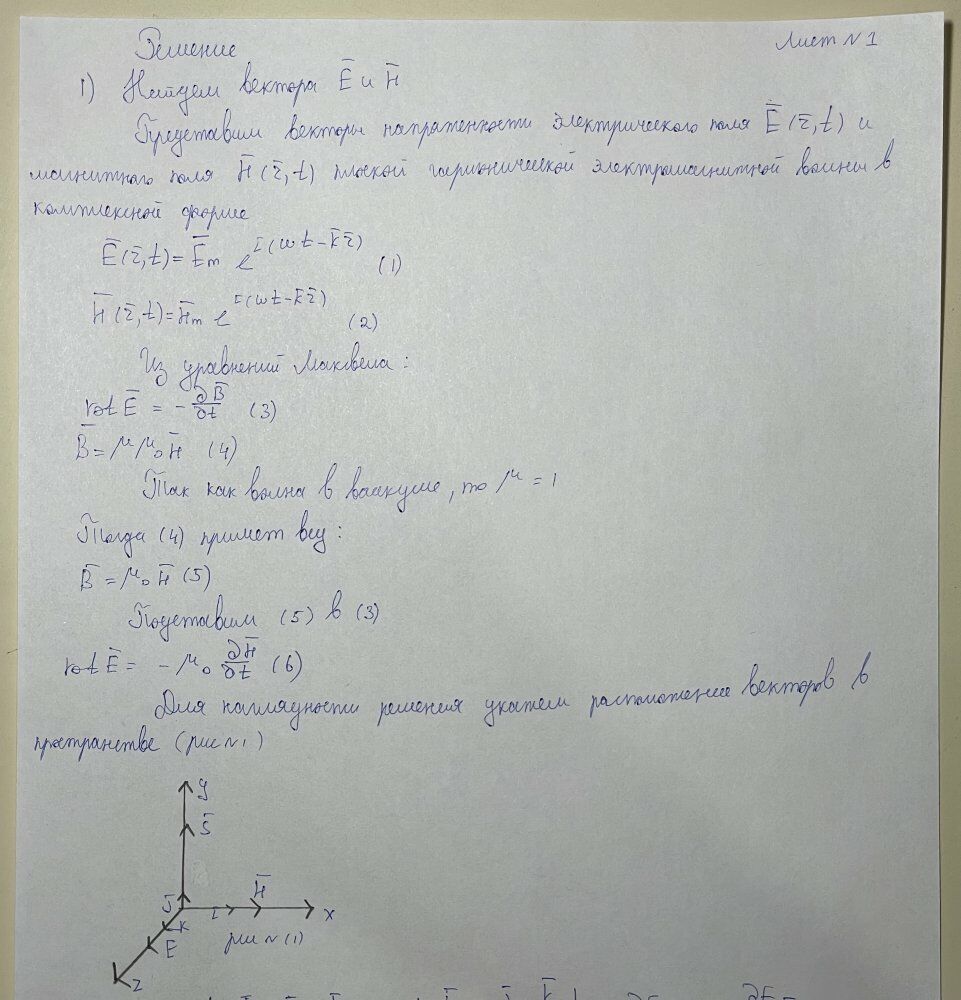 Решение
Лист N 1
1) Найдем вектора E̅ и H̅
Представим векторы напряженности электрического поля E̅(r̅,t) и
магнитного поля H̅(r̅,t) плоской гармонической электромагнитной волны в
комплексной форме
E̅(r̅,t)=E̅m e^i(wt-k̅r̅) (1)
H̅(r̅,t)=H̅m e^i(wt-k̅r̅) (2)
Из уравнений Максвела:
rot E̅ = - ∂B̅/∂t (3)
B̅=μμ₀H̅ (4)
Так как волна в ваакуме, то μ=1
Тогда (4) примет вид:
B̅=μ₀H̅ (5)
Подставим (5) в (3)
rot E̅ = -μ₀ ∂H̅/∂t (6)
Для наглядности решения укажем расположение векторов в
пространстве (рис N1)
y
S̅
j̅
H̅
i
x
k
E
z
рис N (1)